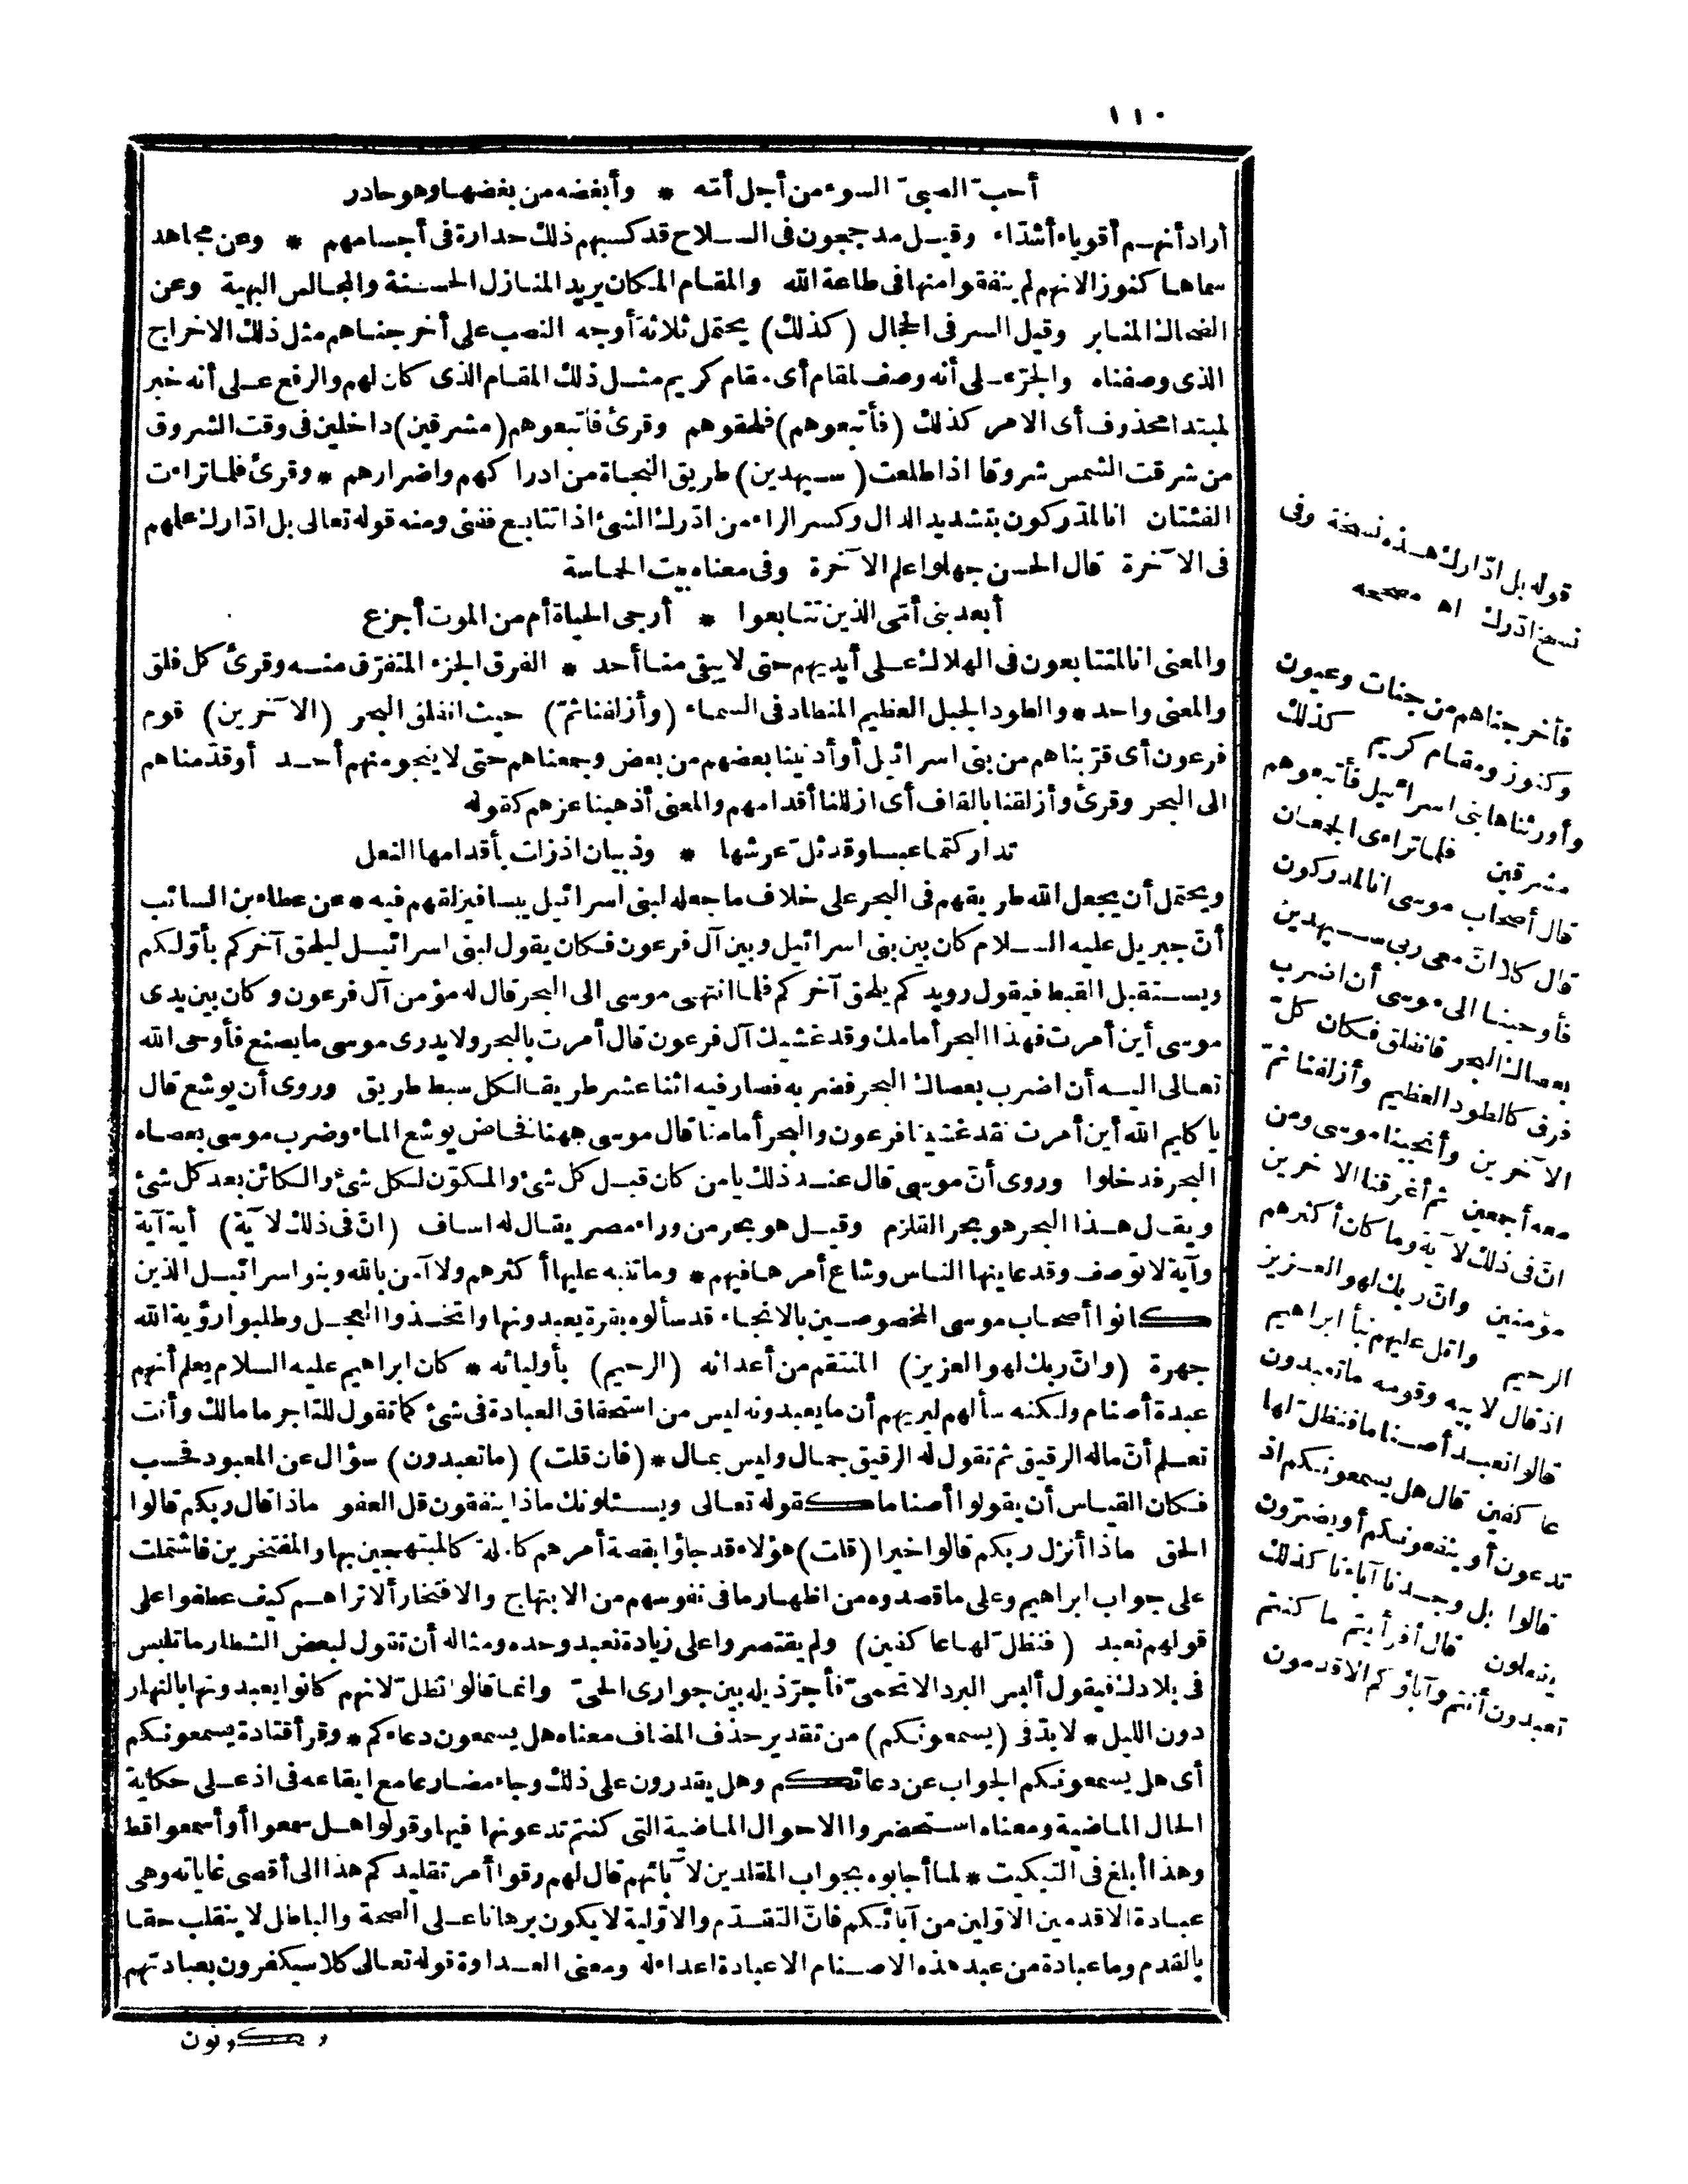 ١١٠
أحبّ الصبىّ السوء من أجل أمّه * وأبغضه من بغضها وهو حادر
أراد أنهم أقوياء أشدّاء وقيل مدججون فى السلاح قد كسبهم ذلك حدارة فى أجسامهم * وعن مجاهد
سماها كنوزا لانهم لم ينفقوا منها فى طاعة الله والمقام المكان يريد المنازل الحسنة والمجالس البهية وعن
الضحاك المنابر وقيل السر فى الحجال (كذلك) يحتمل ثلاثة أوجه النصب على أخرجناهم مثل ذلك الاخراج
الذى وصفناه والجرّ على أنه وصف لمقام أى مقام كريم مثل ذلك المقام الذى كان لهم والرفع على أنه خبر
لمبتدا محذوف أى الامر كذلك (فأتبعوهم) فلحقوهم وقرئ فاتبعوهم (مشرقين) داخلين فى وقت الشروق
من شرقت الشمس شروقا اذا طلعت (سيهدين) طريق النجاة من ادراكهم واضرارهم * وقرئ فلما تراءت
الفئتان انا لمدّركون بتشديد الدال وكسر الراء من ادّرك الشئ اذا تتابع ففنى ومنه قوله تعالى بل ادّارك علمهم
فى الآخرة قال الحسن جهلوا علم الآخرة وفى معناه بيت الحماسة
أبعد بنى أمّى الذين تتابعوا * أرجى الحياة أم من الموت أجزع
والمعنى انا لمتتابعون فى الهلاك على أيديهم حتى لا يبقى منا أحد * الفرق الجزء المتفرّق منه وقرئ كل فلق
والمعنى واحد * والطود الجبل العظيم المنطاد فى السماء (وأزلفنا ثمّ) حيث انفلق البحر (الآخرين) قوم
فرعون أى قرّبناهم من بنى اسرائيل أو أدنينا بعضهم من بعض وجمعناهم حتى لا ينجو منهم أحد أو قدّمناهم
الى البحر وقرئ وأزلقنا بالقاف أى أزللنا أقدامهم والمعنى أذهبنا عزهم كقوله
تداركتما عبسا وقد ثلّ عرشها * وذبيان اذ زلت بأقدامها النعل
ويحتمل أن يجعل الله طريقهم فى البحر على خلاف ما جعله لبنى اسرائيل يبسا فيزلقهم فيه * عن عطاء بن السائب
أنّ جبريل عليه السلام كان بين بنى اسرائيل وبين آل فرعون فكان يقول لبنى اسرائيل ليلحق آخركم بأوّلكم
ويستقبل القبط فيقول رويدكم يلحق آخركم فلما انتهى موسى الى البحر قال له مؤمن آل فرعون وكان بين يدى
موسى أين أمرت فهذا البحر أمامك وقد غشيك آل فرعون قال أمرت بالبحر ولا يدرى موسى ما يصنع فأوحى الله
تعالى اليه أن اضرب بعصاك البحر فضربه فصار فيه اثنا عشر طريقا لكل سبط طريق وروى أن يوشع قال
يا كليم الله أين أمرت فقد غشينا فرعون والبحر أمامنا قال موسى ههنا فخاض يوشع الماء وضرب موسى بعصاه
البحر فدخلوا وروى أنّ موسى قال عند ذلك يا من كان قبل كل شئ والمكوّن لكل شئ والكائن بعد كل شئ
ويقال هذا البحر هو بحر القلزم وقيل هو بحر من وراء مصر يقال له اساف (انّ فى ذلك لآية) أية آية
وآية لا توصف وقد عاينها الناس وشاع أمرها فيهم * وما تنبه عليها أكثرهم ولا آمن بالله وبنو اسرائيل الذين
كانوا أصحاب موسى المخصوصين بالانجاء قد سألوه بقرة يعبدونها واتخذوا العجل وطلبوا رؤية الله
جهرة (وانّ ربك لهو العزيز) المنتقم من أعدائه (الرحيم) بأوليائه * كان ابراهيم عليه السلام يعلم أنهم
عبدة أصنام ولكنه سألهم ليريهم أن ما يعبدونه ليس من استحقاق العبادة فى شئ كما تقول للتاجر ما مالك وأنت
تعلم أنّ ماله الرقيق ثم تقول له الرقيق جمال وليس بمال * (فان قلت) (ما تعبدون) سؤال عن المعبود فحسب
فكان القياس أن يقولوا أصناما كقوله تعالى ويسئلونك ماذا ينفقون قل العفو ماذا قال ربكم قالوا
الحق ماذا أنزل ربكم قالوا خيرا (قلت) هؤلاء قد جاؤا بقصة أمرهم كاملة كالمبتهجين بها والمفتخرين فاشتملت
على جواب ابراهيم وعلى ما قصدوه من اظهار ما فى نفوسهم من الابتهاج والافتخار ألا تراهم كيف عطفوا على
قولهم نعبد (فنظلّ لها عاكفين) ولم يقتصروا على زيادة نعبد وحده ومثاله أن تقول لبعض الشطار ما تلبس
فى بلادك فيقول ألبس البرد الاتحمىّ فأجرّ ذيله بين جوارى الحىّ وانما قالوا نظلّ لانهم كانوا يعبدونها بالنهار
دون الليل * لا بدّ فى (يسمعونكم) من تقدير حذف المضاف معناه هل يسمعون دعاءكم * وقرأ قتادة يسمعونكم
أى هل يسمعونكم الجواب عن دعائكم وهل يقدرون على ذلك وجاء مضارعا مع ايقاعه فى اذ على حكاية
الحال الماضية ومعناه استحضروا الاحوال الماضية التى كنتم تدعونها فيها وقولوا هل سمعوا أو أسمعوا قط
وهذا أبلغ فى التبكيت * لما أجابوه بجواب المقلدين لآبائهم قال لهم رقوا أمر تقليدكم هذا الى أقصى غاياته وهى
عبادة الاقدمين الاوّلين من آبائكم فانّ التقدّم والاوّلية لا يكون برهانا على الصحة والباطل لا ينقلب حقا
بالقدم وما عبادة من عبد هذه الاصنام الا عبادة اعداء له ومعنى العداوة قوله تعالى كلا سيكفرون بعبادتهم
ويكونون
قوله بل ادّارك هذه نسخة وفى
نسخ ادّرك اه مصححه
فأخرجناهم من جنات وعيون
وكنوز ومقام كريم كذلك
وأورثناها بنى اسرائيل فأتبعوهم
مشرقين فلما تراءى الجمعان
قال أصحاب موسى انا لمدركون
قال كلا انّ معى ربى سيهدين
فأوحينا الى موسى أن اضرب
بعصاك البحر فانفلق فكان كلّ
فرق كالطود العظيم وأزلفنا ثمّ
الآخرين وأنجينا موسى ومن
معه أجمعين ثم أغرقنا الآخرين
انّ فى ذلك لآية وما كان أكثرهم
مؤمنين وانّ ربك لهو العزيز
الرحيم واتل عليهم نبأ ابراهيم
اذ قال لابيه وقومه ما تعبدون
قالوا نعبد أصناما فنظلّ لها
عاكفين قال هل يسمعونكم اذ
تدعون أو ينفعونكم أو يضرّون
قالوا بل وجدنا آباءنا كذلك
يفعلون قال أفرأيتم ما كنتم
تعبدون أنتم وآباؤكم الاقدمون